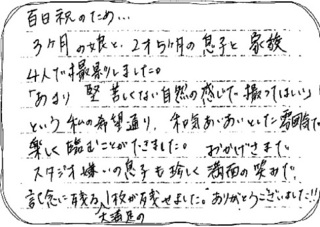 百日祝のため…
3ヶ月の娘と、2才5ヶ月の息子と 家族
4人で撮影しました。
「あまり 堅苦しくない自然の感じで 撮ってほしい」
という 私の希望通り、和気あいあいとした 雰囲気で
楽しく 臨むことができました。 おかげさまで
スタジオ嫌いの息子も珍しく 満面の笑みで、
記念に残る大満足の1枚が残せました。ありがとうございました!!